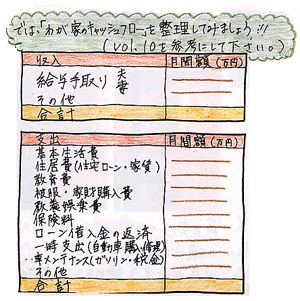 では、「わが家のキャッシュフロー」を整理してみましょう!!
(Vol.10を参考にして下さい。)
収入 月間額(万円)
給与手取り 夫
妻
その他
合計
支出 月間額(万円)
基本生活費
住居費(住宅ローン・家賃)
教育費
被服・家財購入費
教養娯楽費
保険料
ローン借入金の返済
一時支出(自動車購入・修理)
車メンテナンス(ガソリン・税金)
その他
合計